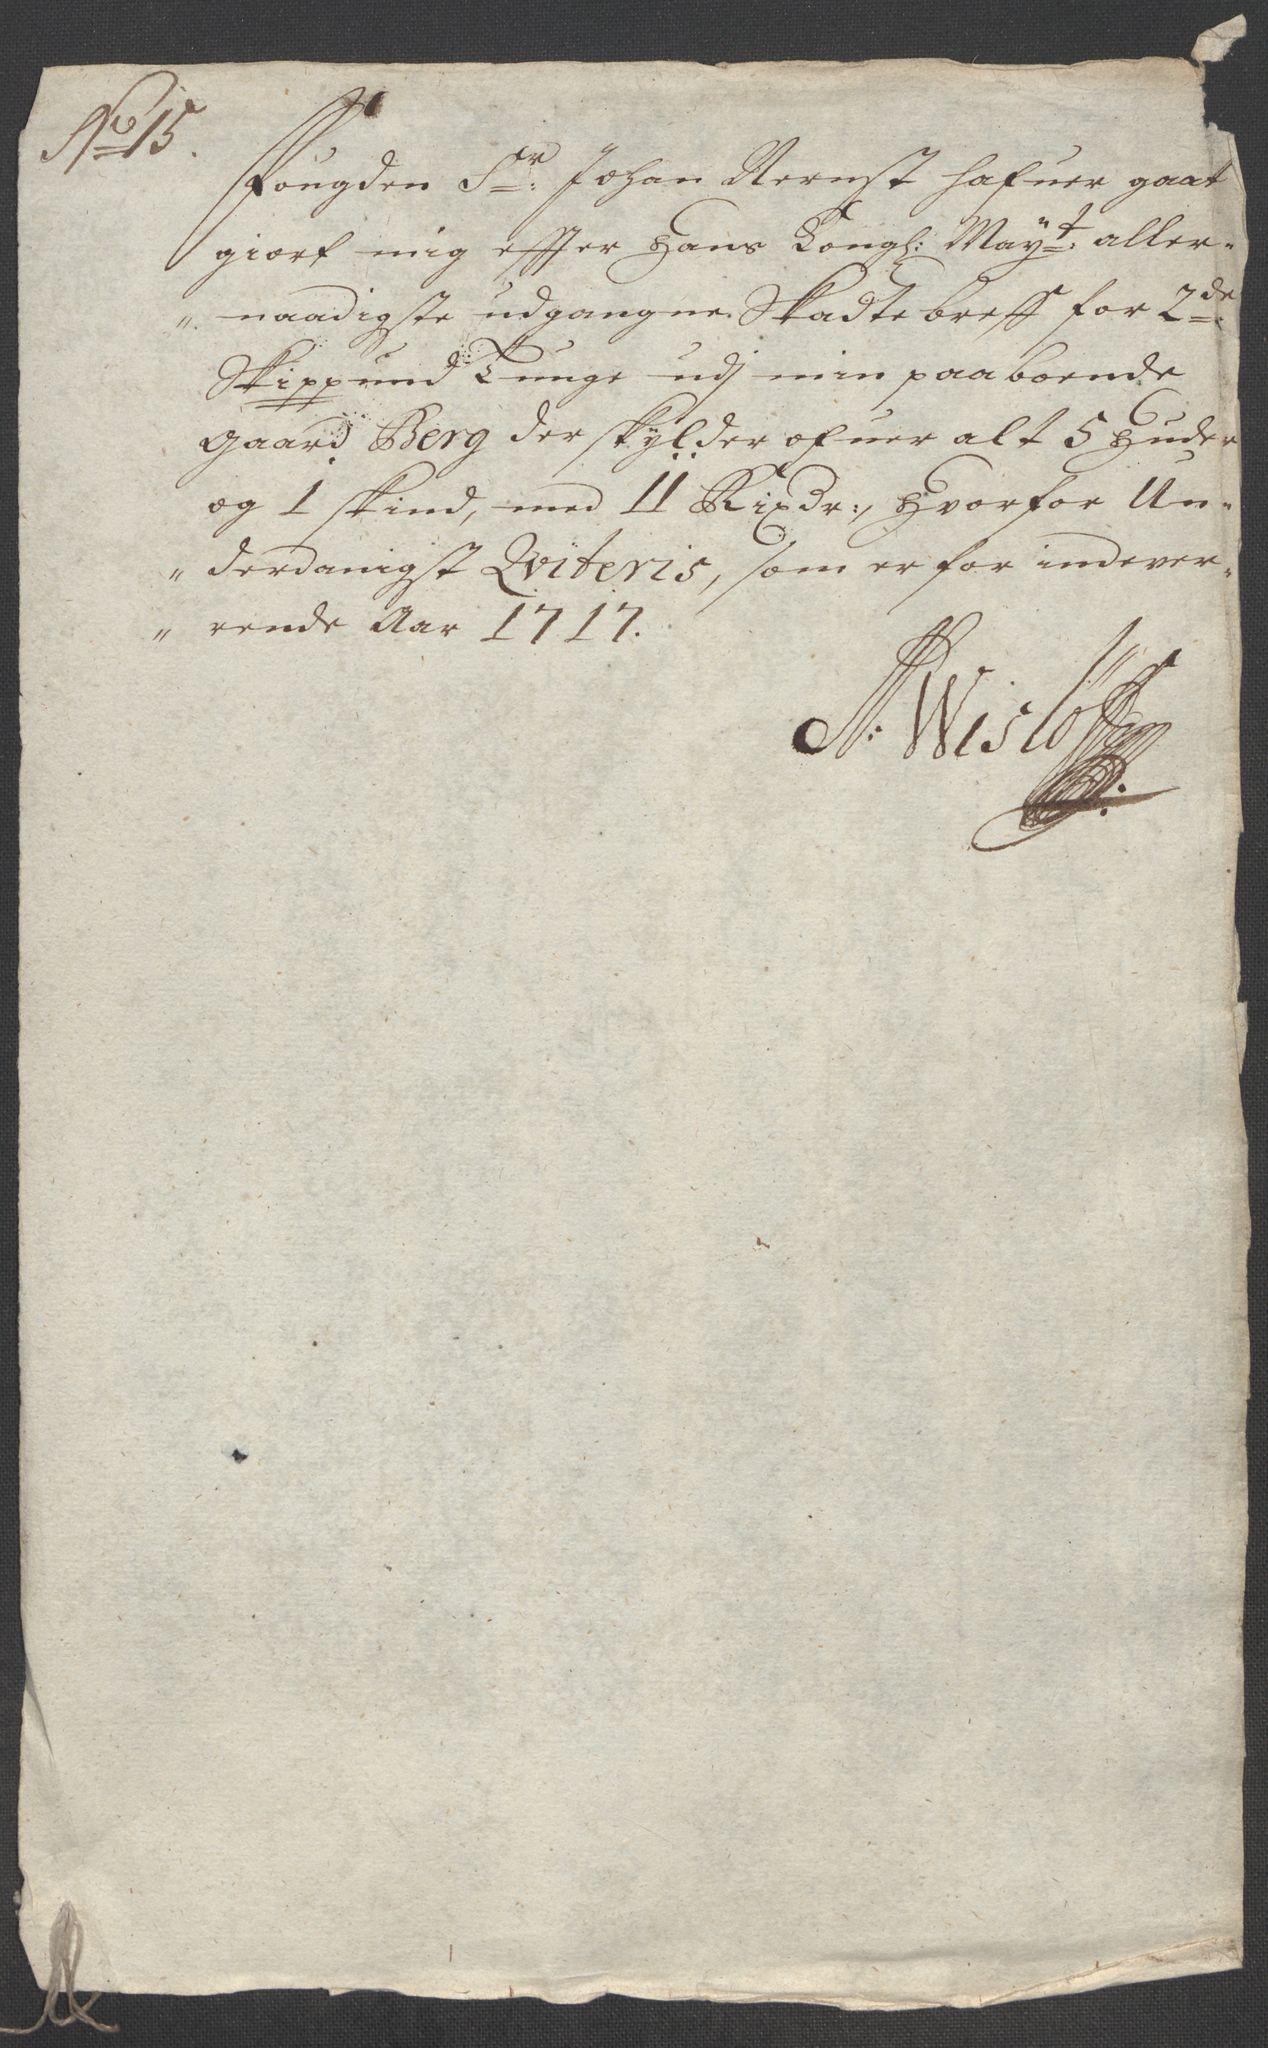 No 15.
Fougden Sr: Johan Aernst hafuer gaat
giort mig effter Hans Kongl: Mayt: aller-
" naadigste udgangne Skadtebreff for 2de
Skippund Tunge udj min paaboende
gaard Berg der skylder ofuer alt 5 Huder
og 1 skind, med 11 Rixdr:, Hvorfor Un-
" derdanigst Qviteris, som er for indever-
" rende Aar 1717.
A: Wisløff